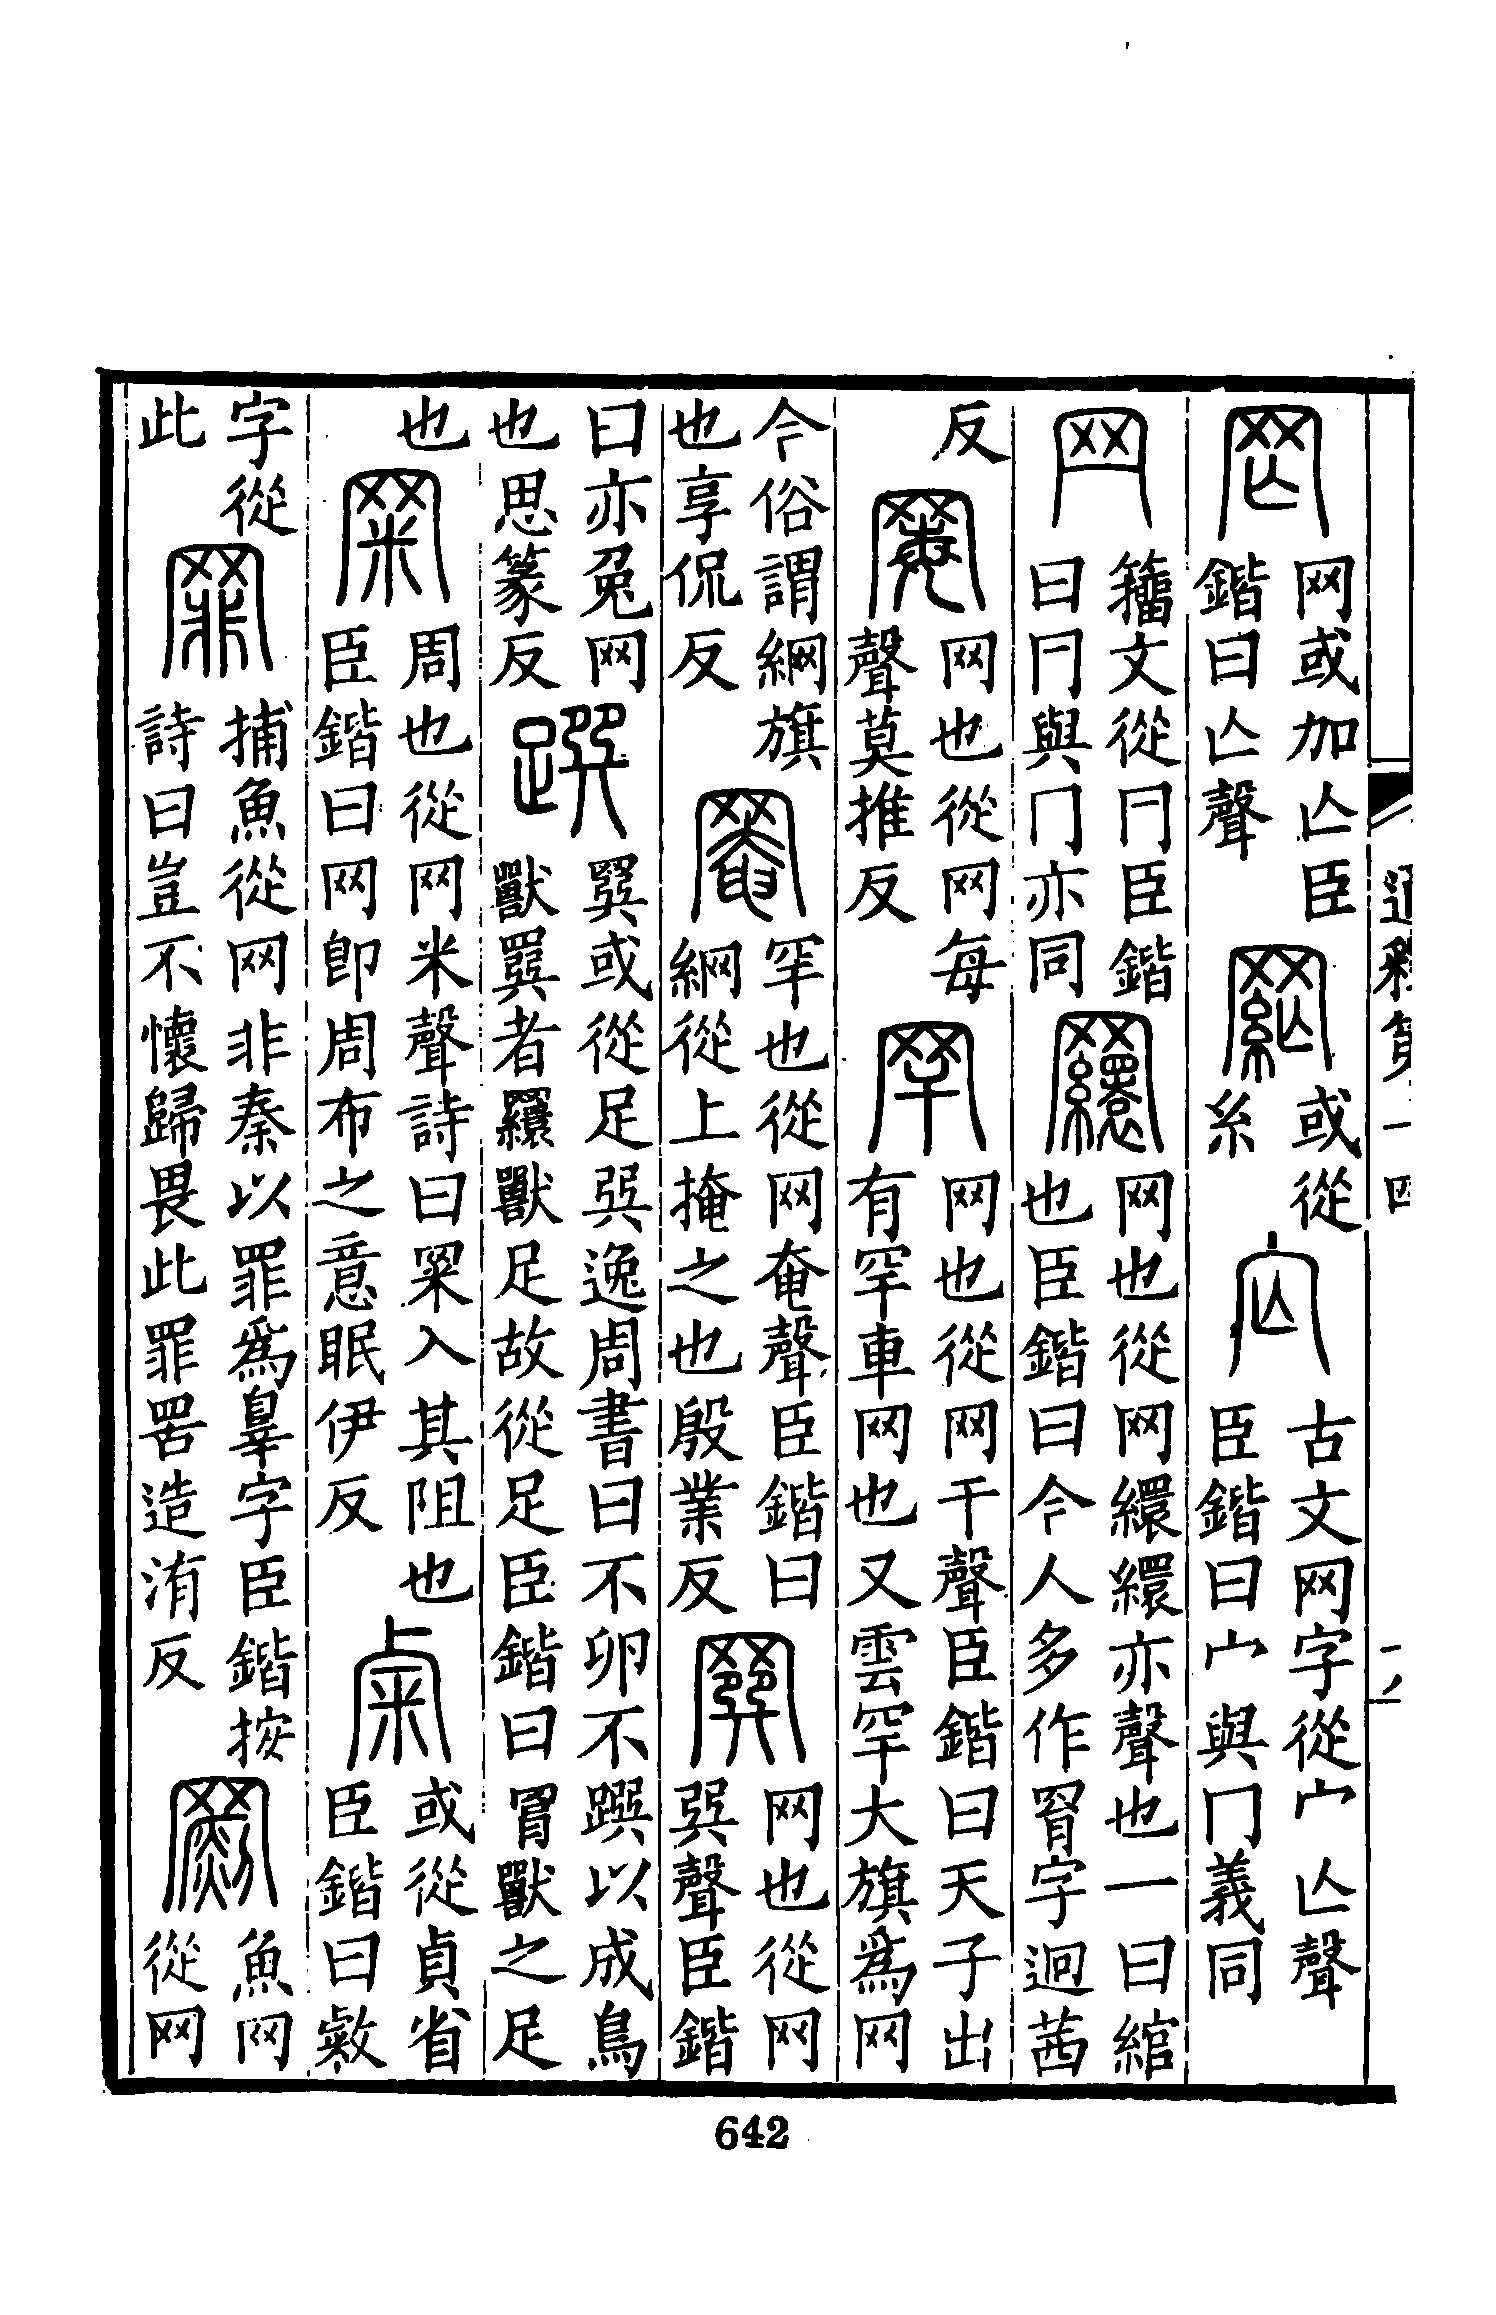 罔 网或加亾臣
鍇曰亾聲
䋄 或從
糸
𠕀 古文网字從宀亾聲
臣鍇曰宀與冂義同
𦉪 籒文從冃臣鍇
曰冃與冂亦同
䍣 网也從网繯繯亦聲也一曰綰
也臣鍇曰今人多作罥字迥茜
反
䍙 网也從网每
聲莫推反
罕 网也從网干聲臣鍇曰天子出
有罕車网也又雲罕大旗爲网
今俗謂網旗
也享侃反
罨 罕也從网奄聲臣鍇曰
網從上掩之也殷業反
䍻 网也從网
巽聲臣鍇
曰亦兔网
也思篆反
䠣 䍻或從足巽逸周書曰不卵不䠣以成鳥
獸䍻者䍣獸足故從足臣鍇曰冐獸之足
也
罙 周也從网米聲詩曰罙入其阻也
臣鍇曰网即周布之意眠伊反
或從貞省
臣鍇曰敹
字從
此
罪 捕魚從网非秦以罪爲辠字臣鍇按
詩曰豈不懷歸畏此罪罟造洧反
罽 魚网
從网
通釋第十四
642